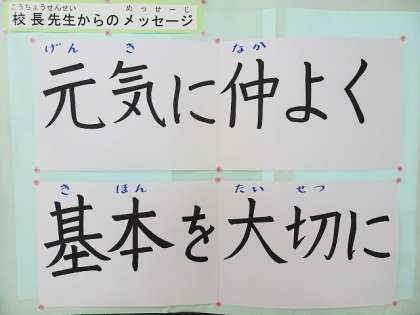 こうちょうせんせい めっせーじ
校長先生からのメッセージ
げんき なか
元気に仲よく
きほん たいせつ
基本を大切に